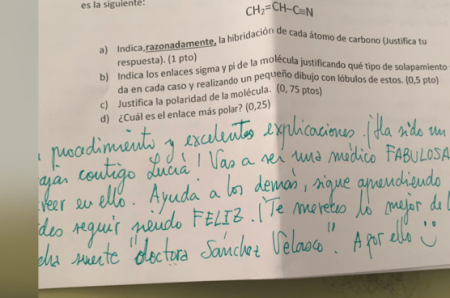 es la siguiente:
CH₂=CH–C≡N
a) Indica, razonadamente, la hibridación de cada átomo de carbono (Justifica tu
respuesta). (1 pto)
b) Indica los enlaces sigma y pi de la molécula justificando qué tipo de solapamiento
da en cada caso y realizando un pequeño dibujo con lóbulos de estos. (0,5 pto)
c) Justifica la polaridad de la molécula. (0, 75 ptos)
d) ¿Cuál es el enlace más polar? (0,25)
procedimiento y excelentes explicaciones. ¡Ha sido un
ajar contigo Lucía! Vas a ser una médico FABULOSA
reer en ello. Ayuda a los demás, sigue aprendiendo
des seguir siendo FELIZ. ¡Te mereces lo mejor de l
cha suerte "doctora Sánchez Velasco". A por ello